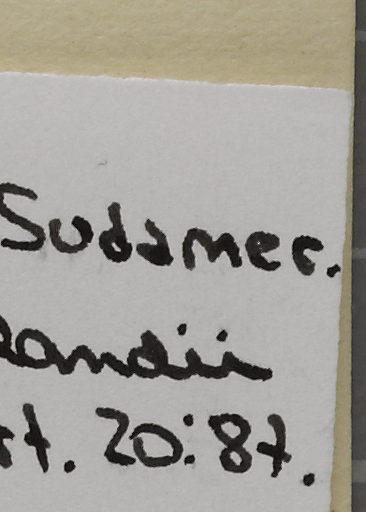 Sudamer.
landii
rt. 20:87.